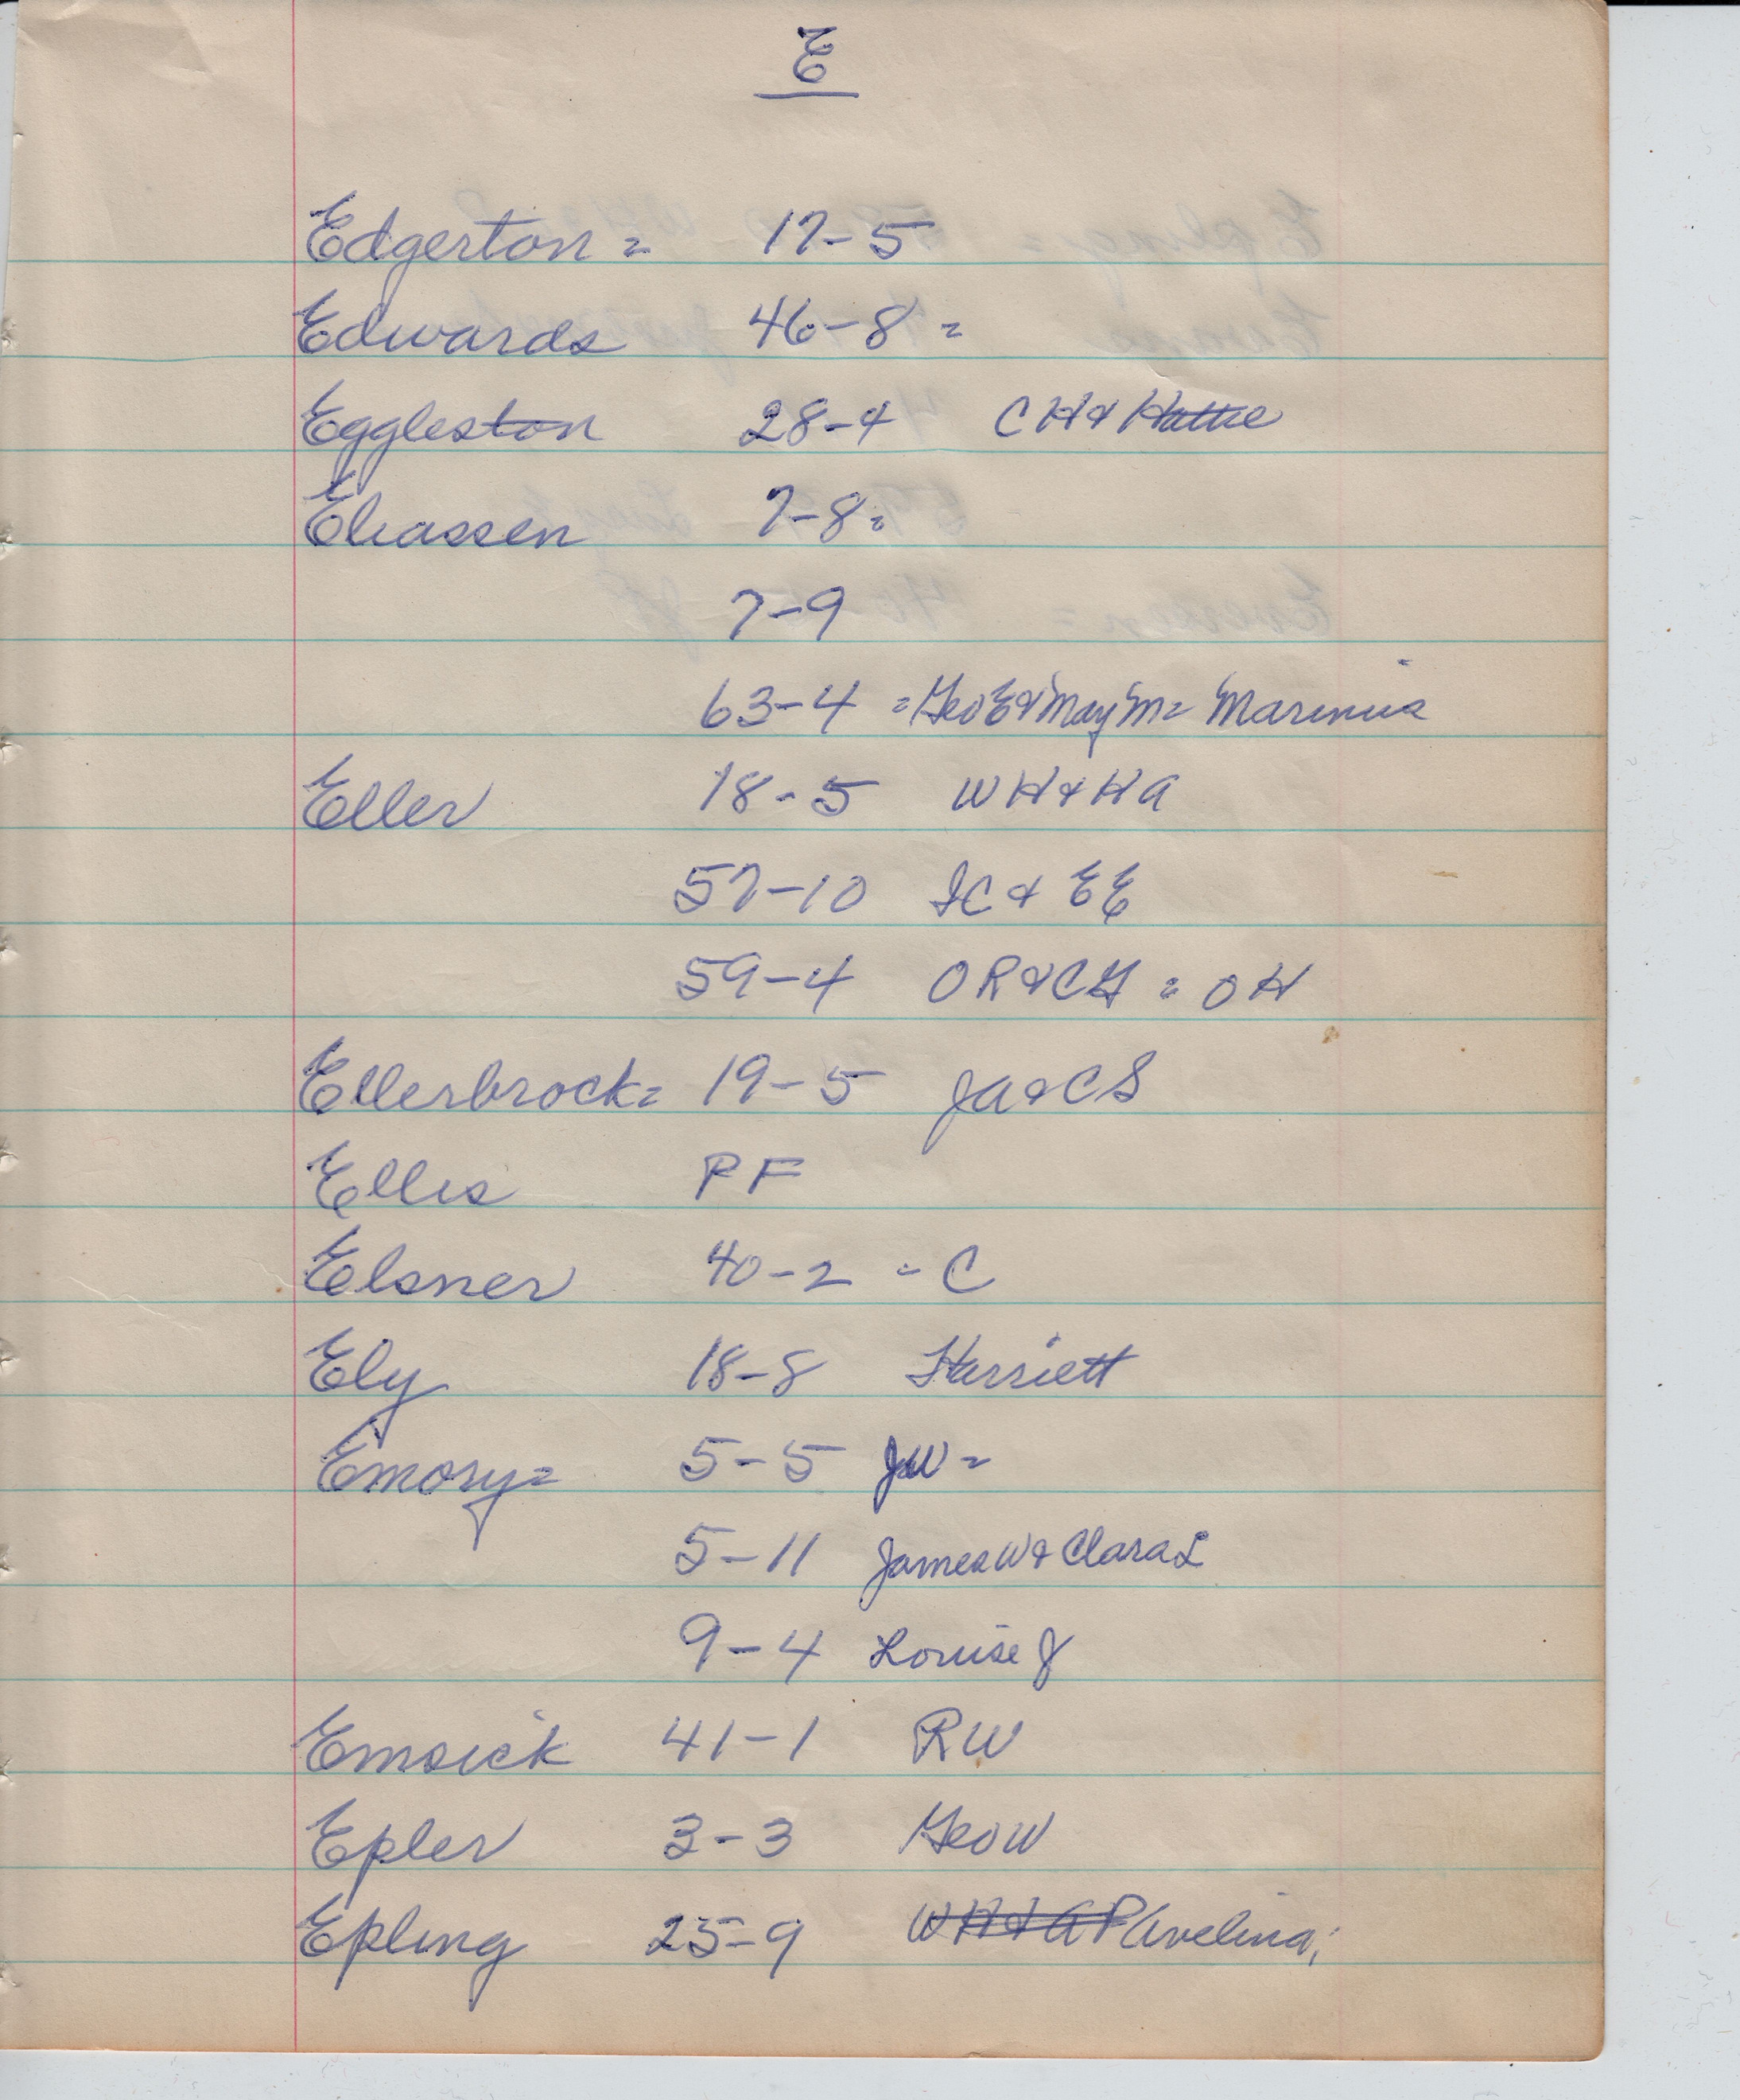 E
Edgerton = 17-5
Edwards 46-8 =
Eggleston 28-4 CH & Hattie
Eliassen 7-8=
7-9
63-4 = Geo E & May M = Marinus
Eller 18-5 WH & HA
57-10 IC & EE
59-4 OR & CG = OH
Ellerbrock = 19-5 JA & CS
Ellis PF
Elsner 40-2 - C
Ely 18-8 Harriett
Emory = 5-5 JW =
5-11 James W & Clara L
9-4 Louise J
Emsick 41-1 RW
Epler 3-3 Geo W
Epling 25-9 WH & AP Avelina;